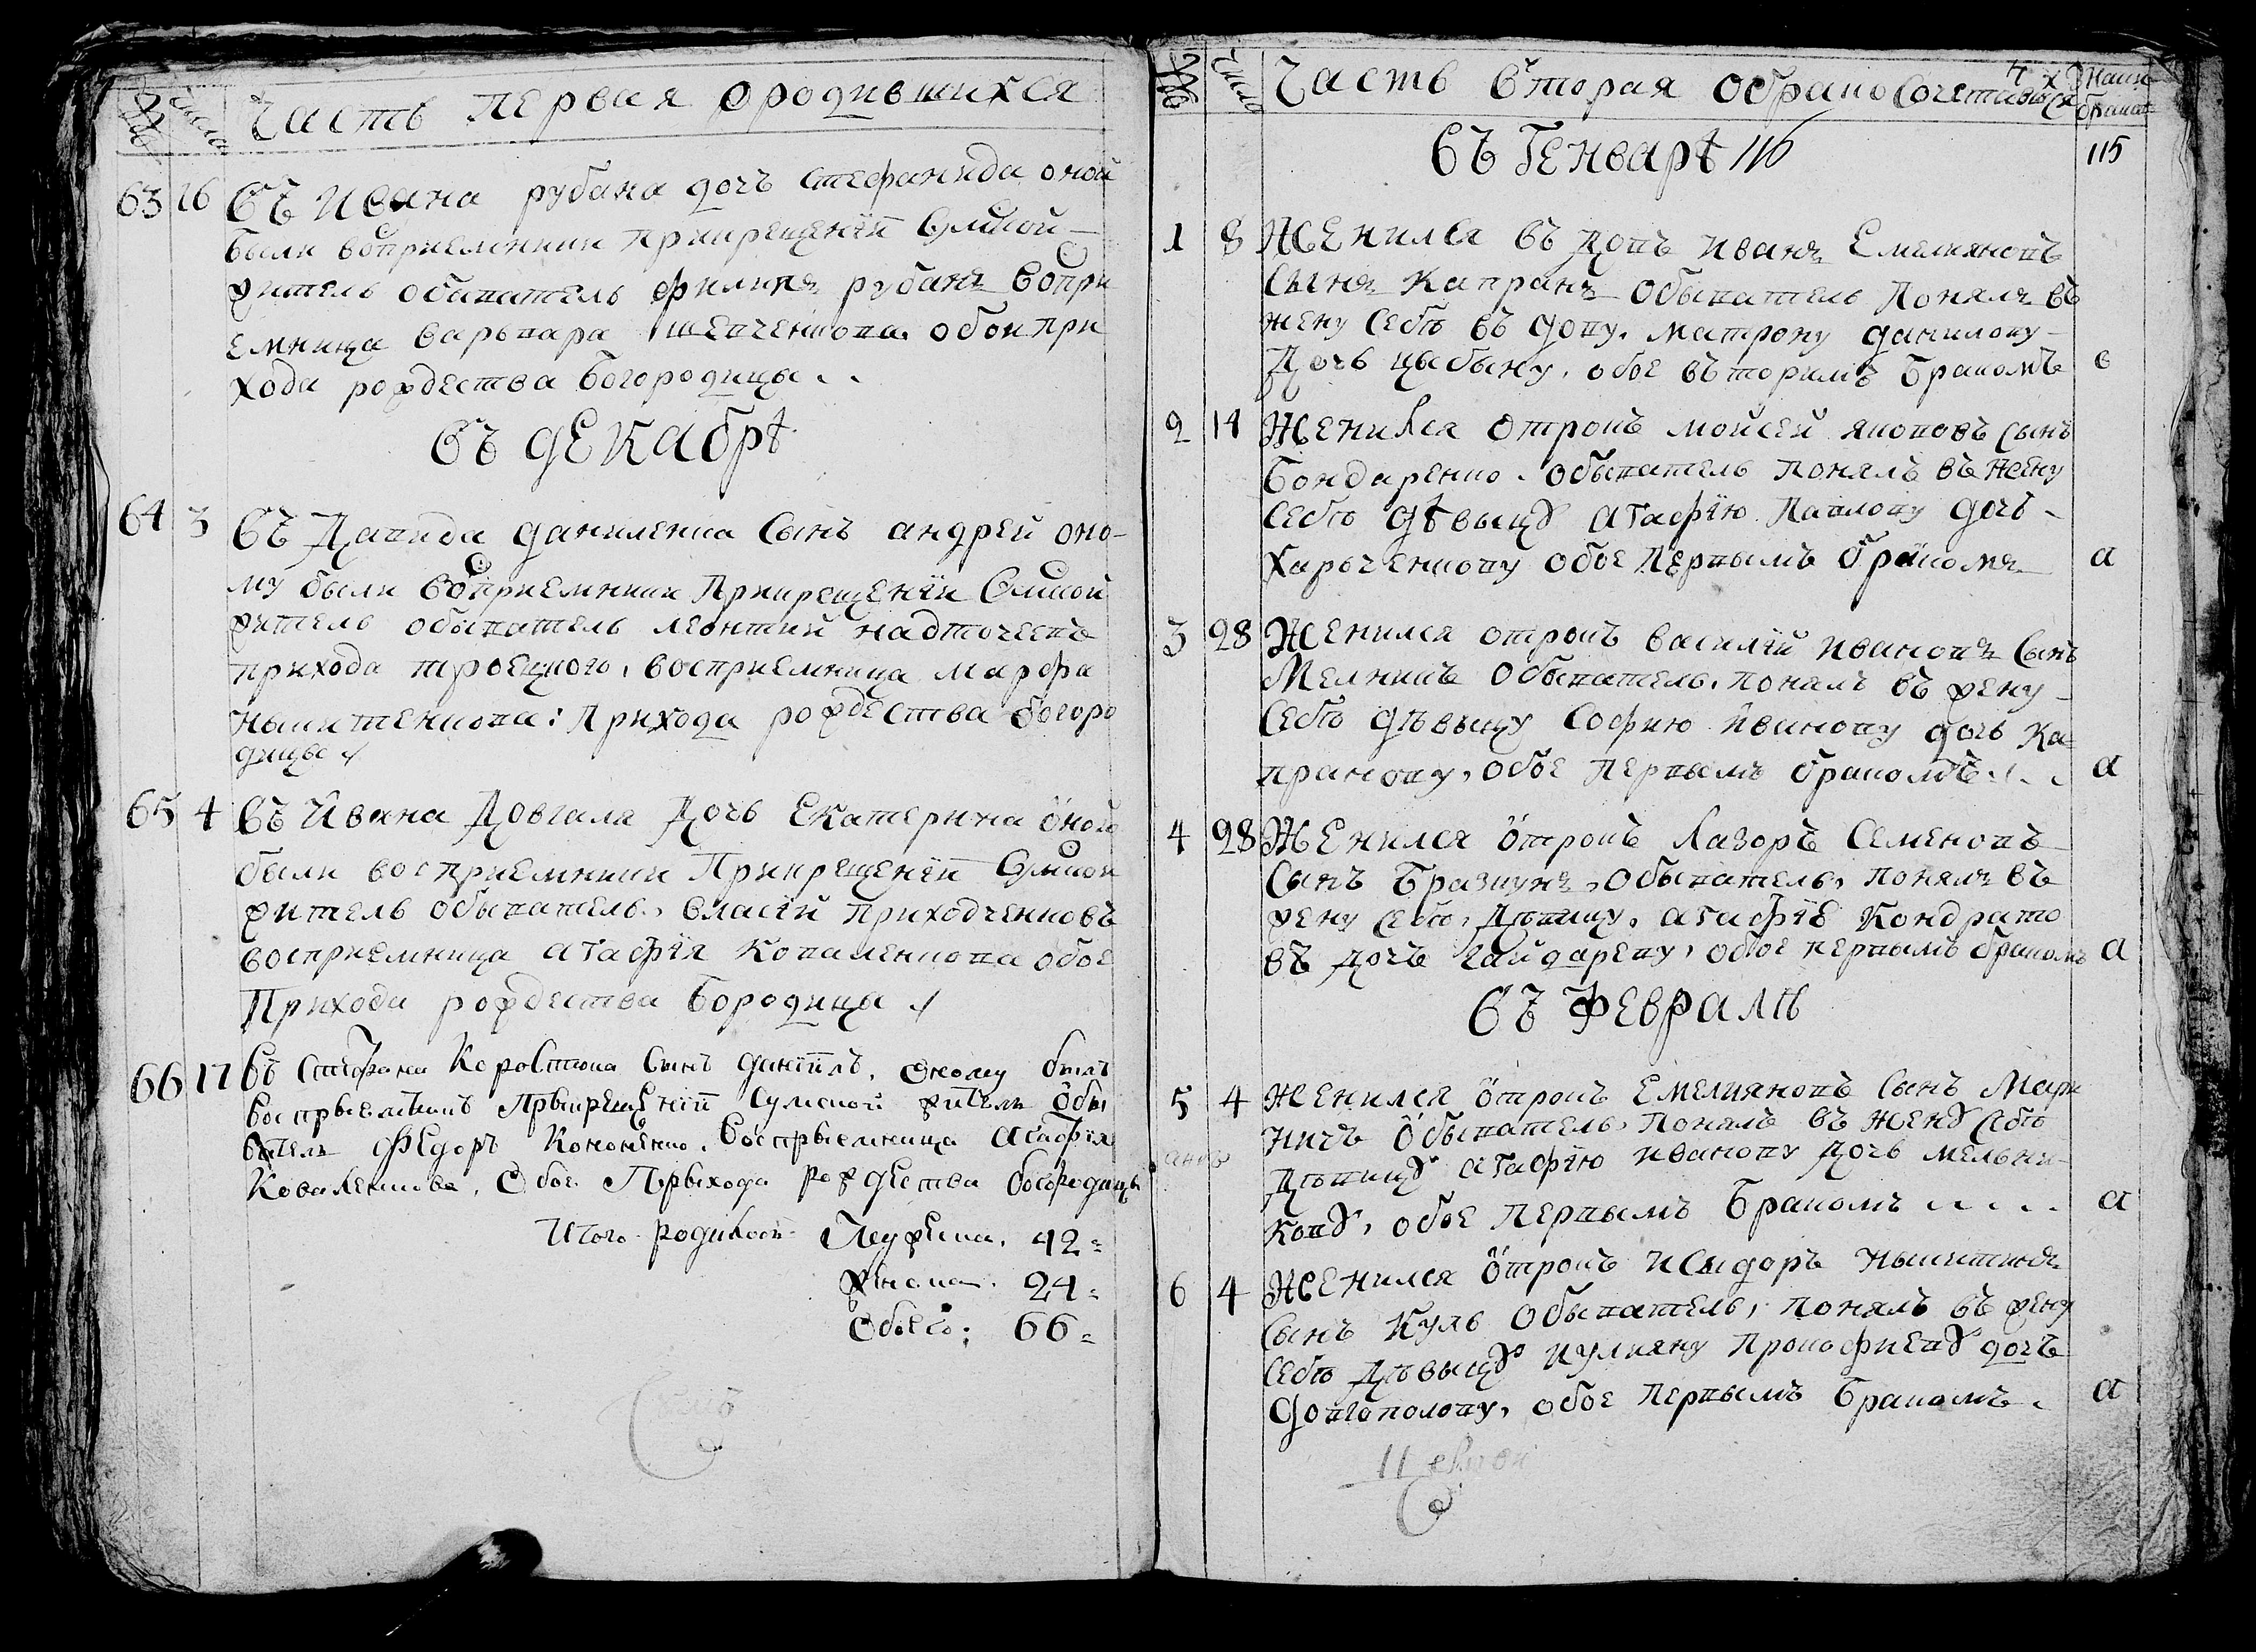 №
числа
Часть первая ородившихся
63 16 Въ Ивана рубана дочь стефанида оной
были восприемники прикрещенїи Сумской
житель обыватель филипъ рубанъ Воспри
емница варьвара шевченкова обои при
хода рождества богородицы
Въ декабрѣ
64 3 Въ Давида даниленка Сынъ андрей оно-
му были восприемники Прикрещенїи Сумской
житель обыватель леонтий надточеевъ
прихода троецкого, восприемница марфа
прихода рождества богоро
дицы
65 4 Въ Ивана Довгаля Дочь Екатерина оной
были восприемники Прикрещенїи Сумской
житель обыватель, власїй приходченковъ
восприемница агафїя коваленкова обое
Прихода рождества Бородицы
66 17 Въ Стефана Коростюка Сынъ данїилъ, оному былъ
воспрыемникъ Прыкрещенїи Сумской житель обы
ватель Федоръ Кононенко, воспрыемница агафїя
Коваленкова, Обое Прыхода рождества богородицы
Итого родилось Мужеска, 42
женска, 24
Обоего; 66
№
числа
Часть вторая обракосочетавшихся
браки
Въ Генварѣ 116
115
1 8 Женился въ довъ иванъ Емелияновъ
Сынъ Капранъ Обыватель Понялъ въ
жену себѣ въ дову, матрону данилову
Дочь цыбыну, обое въторимъ Бракомъ в
2 14 Женился отрокъ мойсей якововъ сынъ
Бондаренко, обыватель понялъ въ жену
себѣ дѣвыцу агафїю Павлову дочь
Харченкову обое Первымъ бракомъ а
3 28 Женился отрокъ василїй ивановъ Сынъ
Мелникъ Обыватель, понялъ въ жену
себѣ дѣвыцу Софию иванову дочь Ка
пранову, обое Первымъ бракомъ а
4 28 Женился отрокъ Лазоръ Семеновъ
Сынъ Бразкунъ, Обыватель, понялъ въ
жену себѣ, Дѣвицу, агафїю Кондрато
въ дочь гайдареву, обое первымъ бракомъ а
Въ Февралѣ
5 4 Женился отрокъ Емелияновъ Сынъ Мар
Обыватель, Понялъ въ жену себѣ
Дѣвицу агафїю иванову Дочь мельни-
кову, обое Первымъ Бракомъ а
6 4 Женился отрокъ Исидоръ
Сынъ Куль Обыватель, понялъ въ жену
себѣ Дѣвыцу иулияну Прокофиеву дочь
Долгополову, обое Первымъ Бракомъ а
11